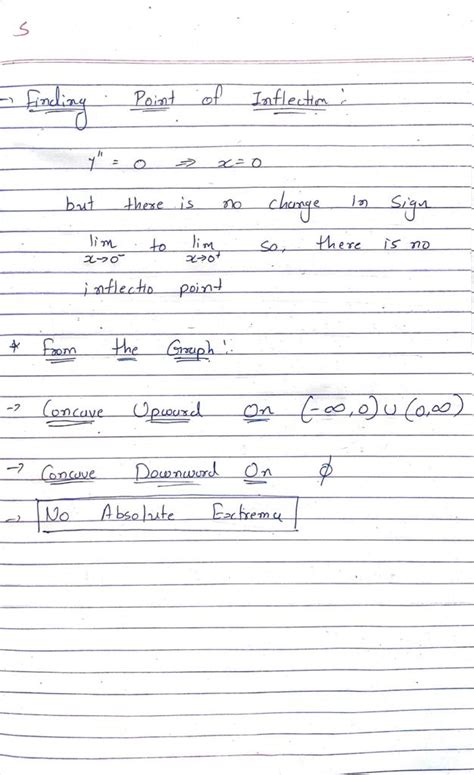 5
→ Finding Point of Inflection:
y'' = 0 ⇒ x = 0
but there is no change In Sign
lim x→0⁻ to lim x→0⁺ so, there is no
inflectio point
* From the Graph:
→ Concave Upward On (-∞,0) ∪ (0,∞)
→ Concave Downword On ϕ
→ No Absolute Extrema